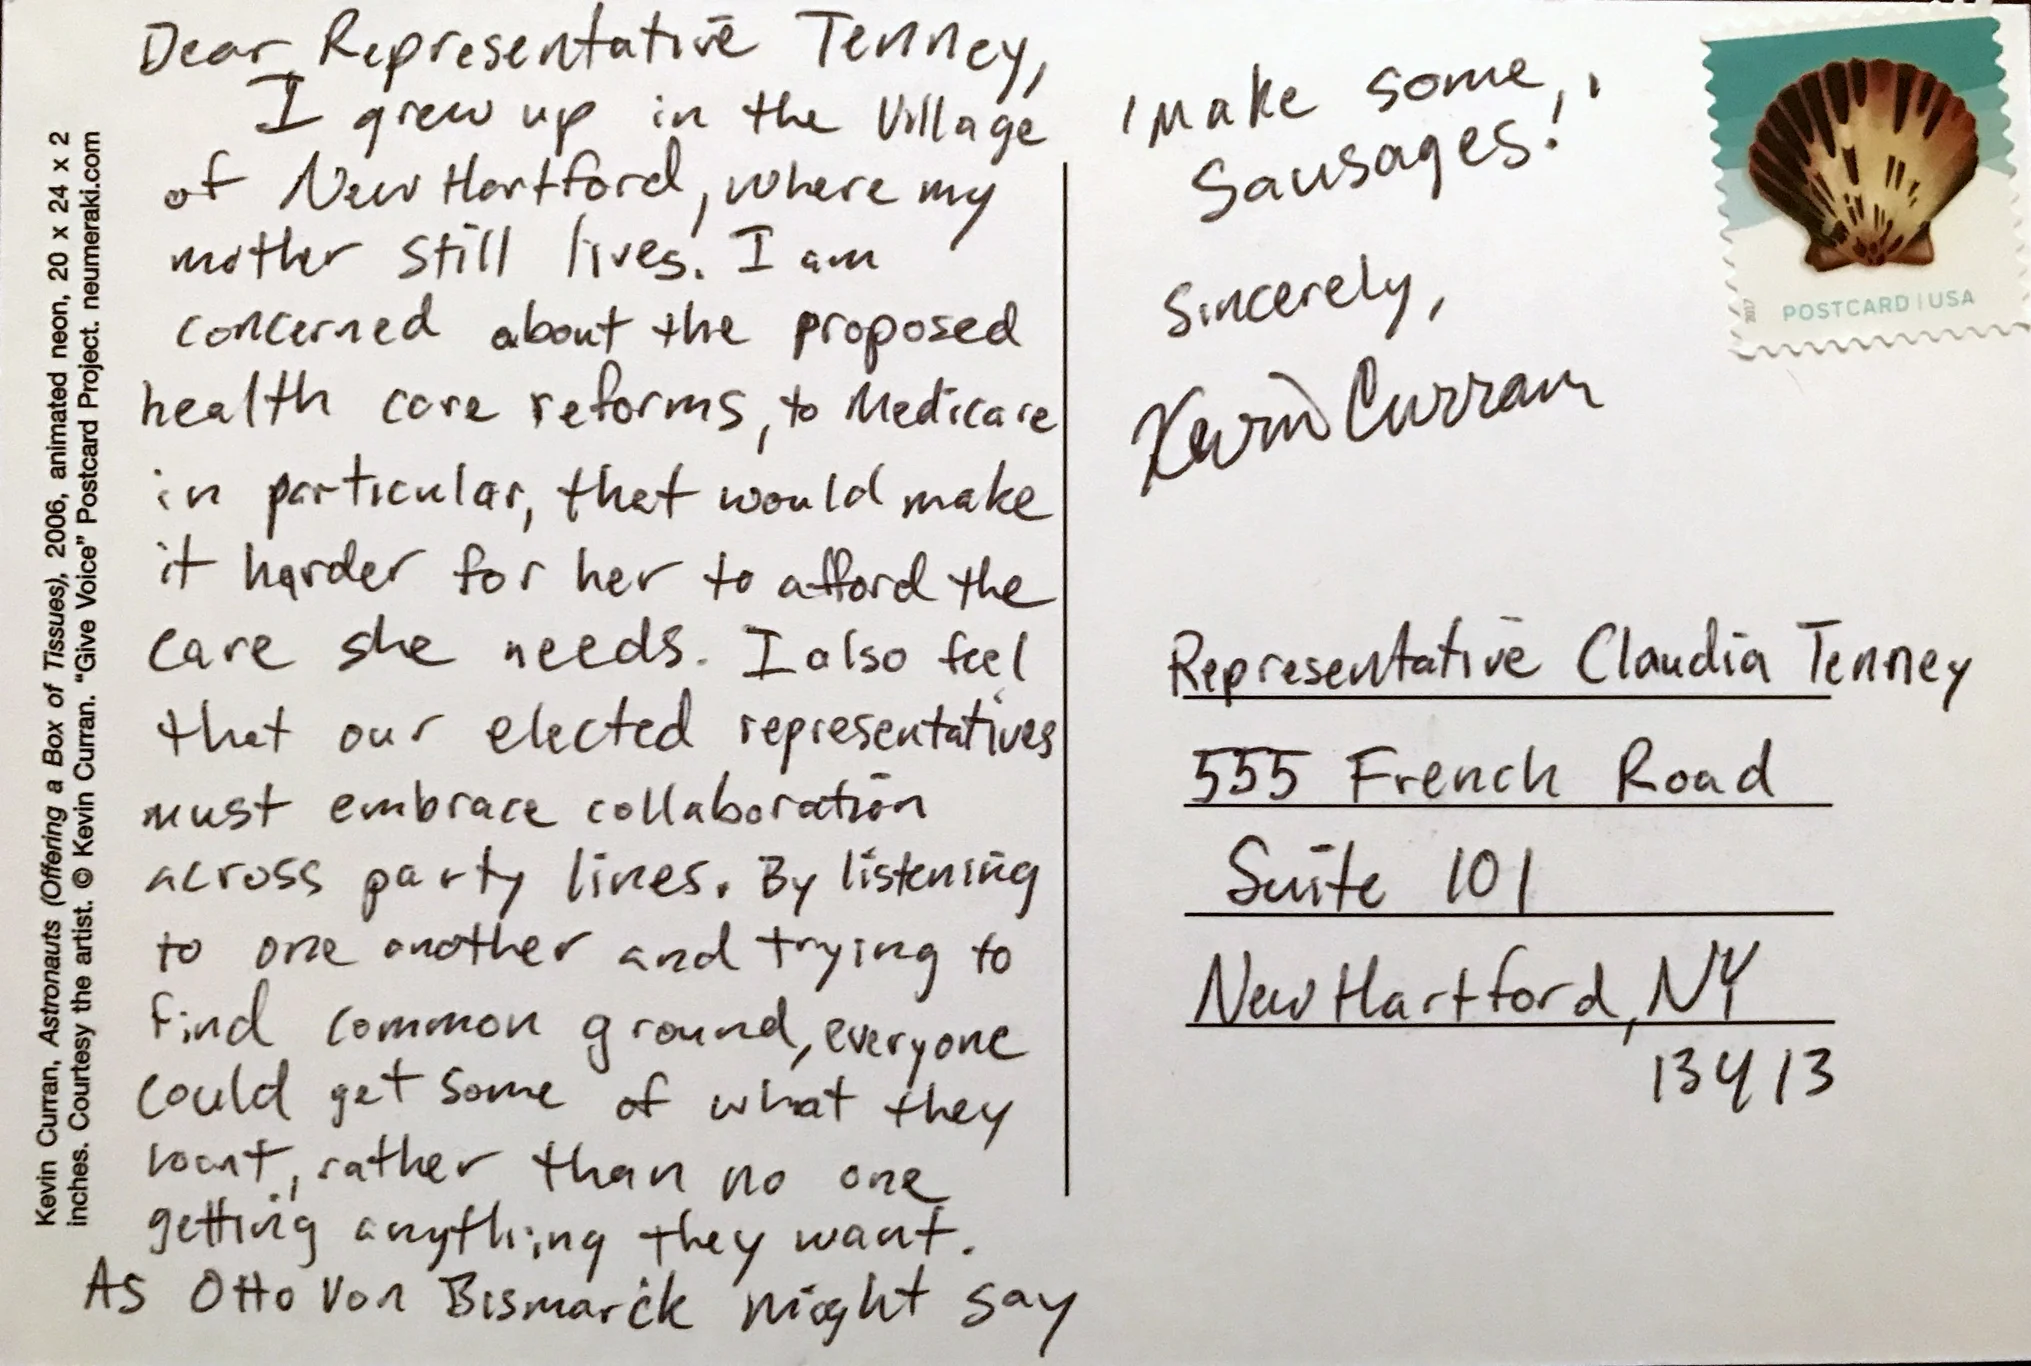 Dear Representative Tenney,
I grew up in the Village
of New Hartford, where my
mother still lives. I am
concerned about the proposed
health care reforms, to Medicare
in particular, that would make
it harder for her to afford the
care she needs. I also feel
that our elected representatives
must embrace collaboration
across party lines. By listening
to one another and trying to
find common ground, everyone
could get some of what they
want, rather than no one
getting anything they want.
As Otto Von Bismarck might say
'Make some
Sausages!'
Sincerely,
Kevin Curran
POSTCARD | USA
2017
Representative Claudia Tenney
555 French Road
Suite 101
New Hartford, NY
13413
Kevin Curran, Astronauts (Offering a Box of Tissues), 2006, animated neon, 20 x 24 x 2
inches. Courtesy the artist. © Kevin Curran. "Give Voice" Postcard Project. neumeraki.com